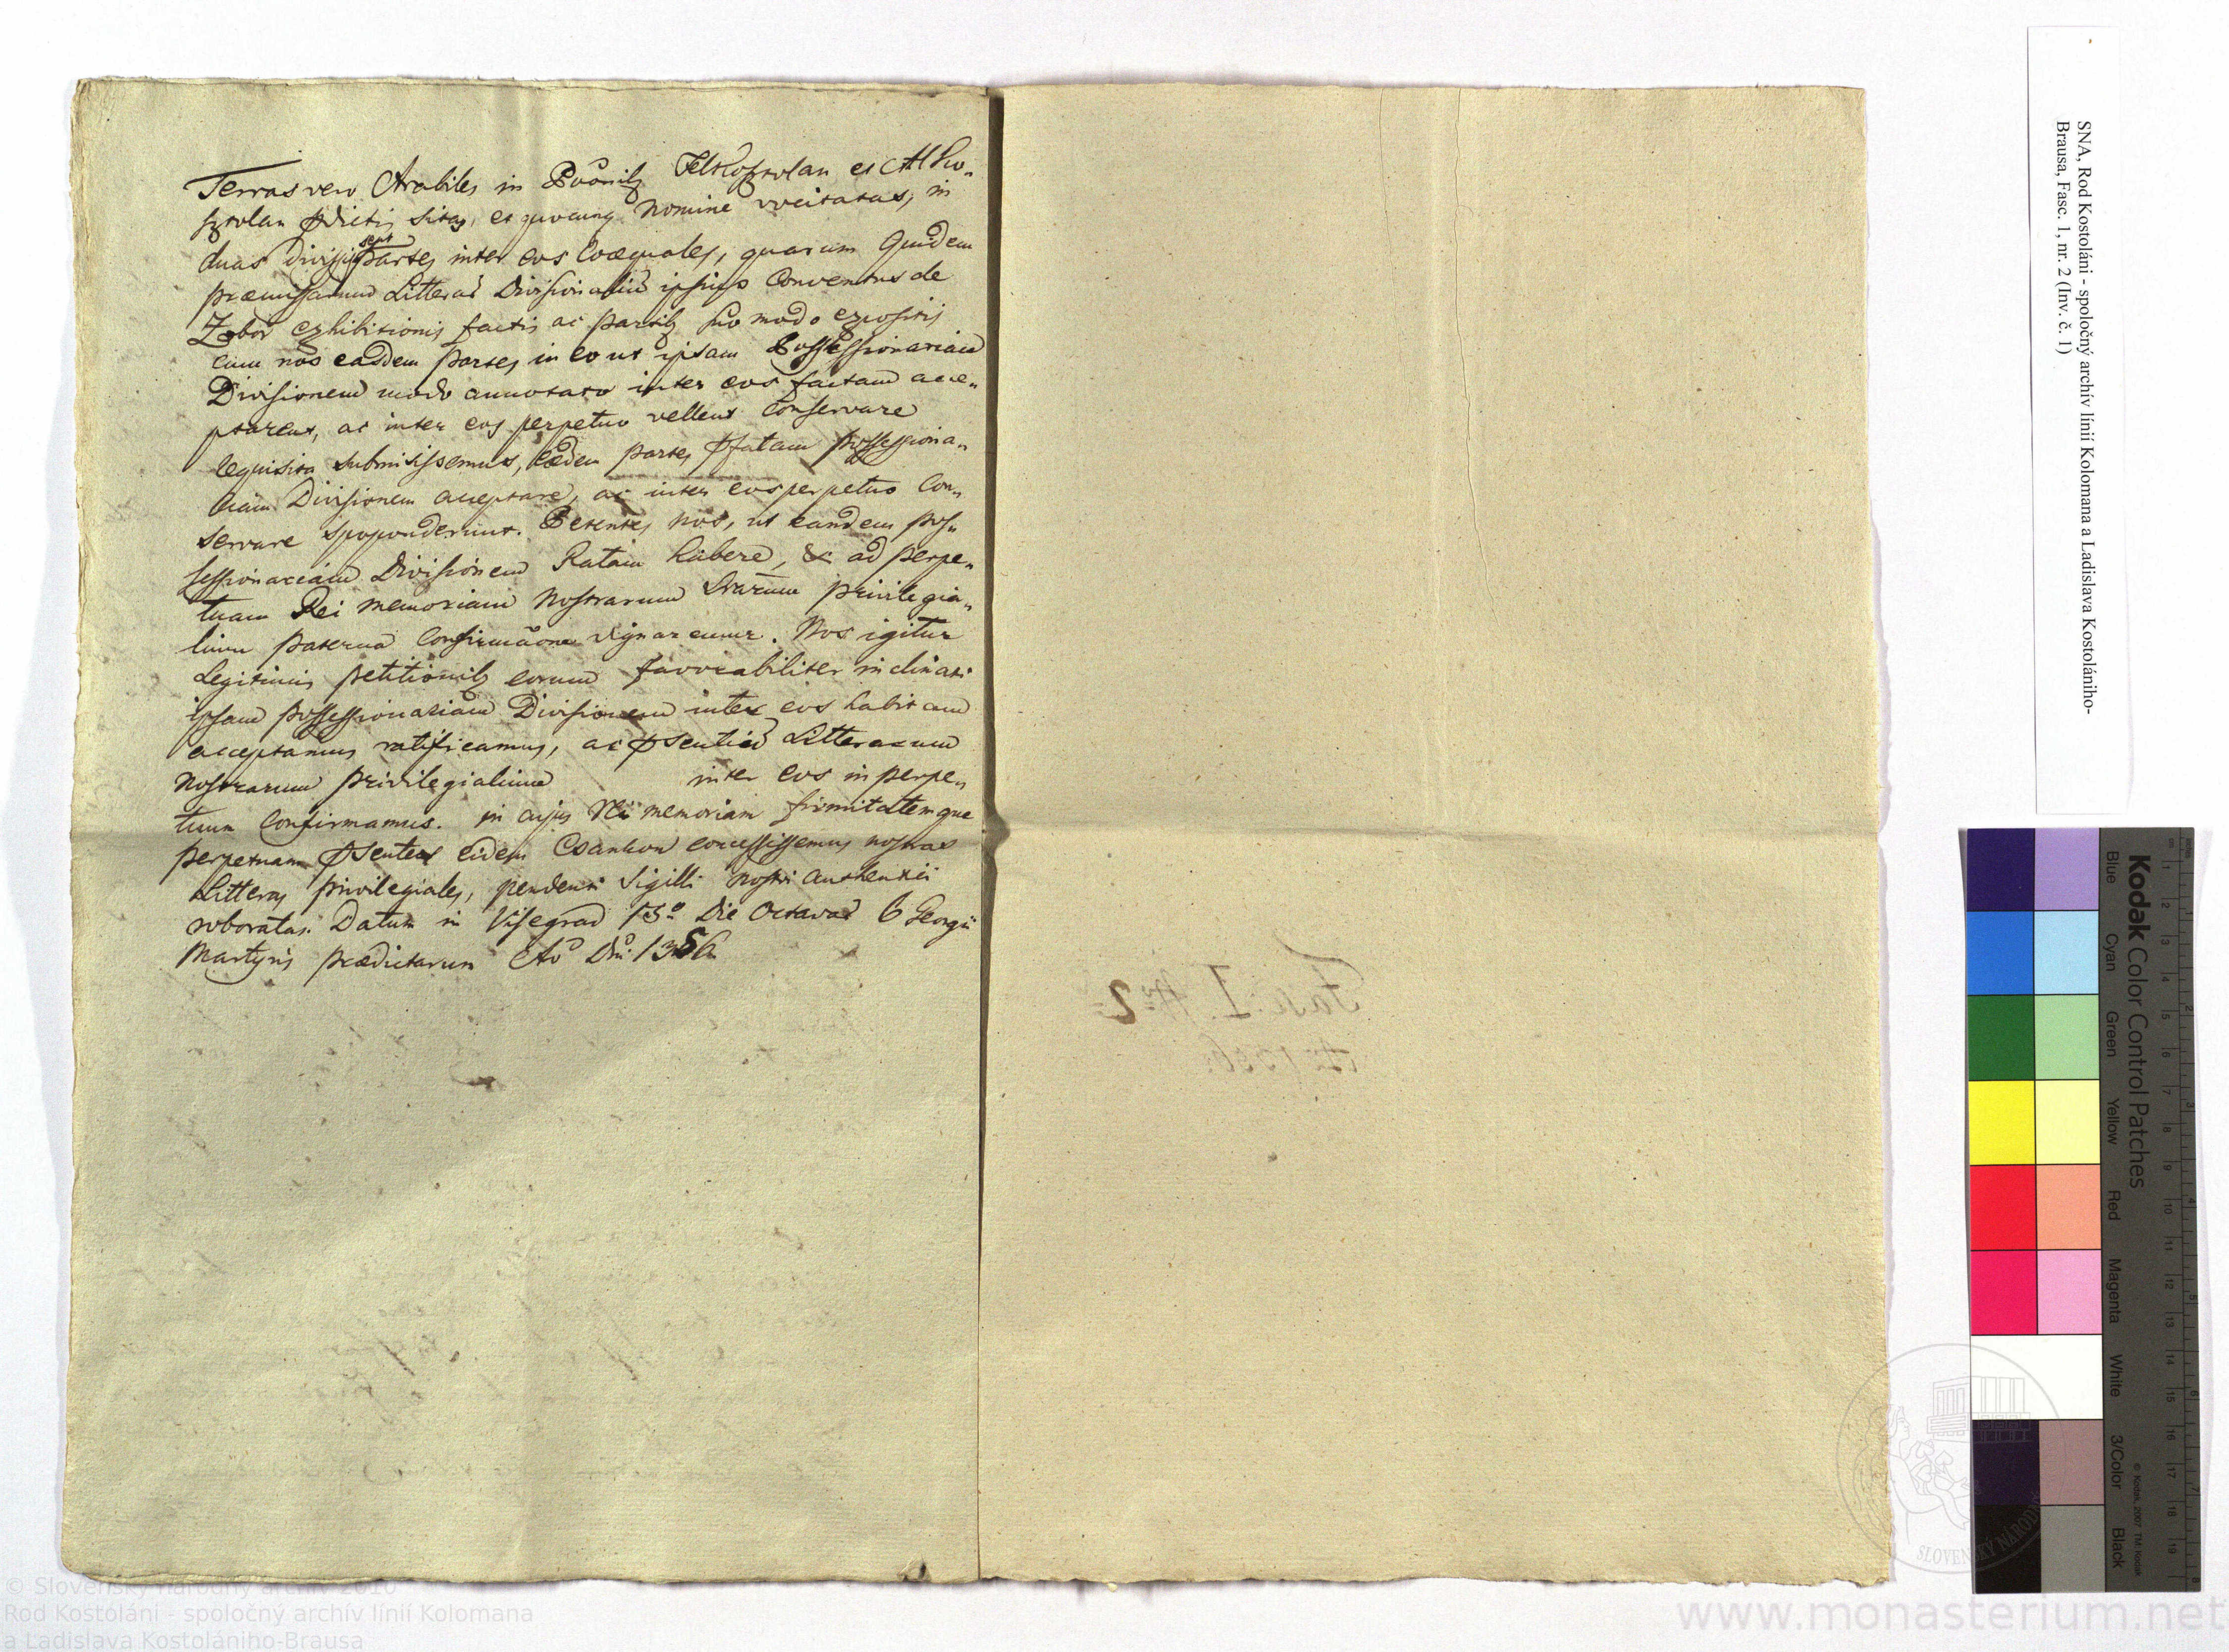 Terras vero Arabiles in Poonib Felkosztolan et Al Ko„
sztolan pdictis sitas, et quocunq nomine vocitatas, in
duas divisissent partes inter eos Coæquales, quarum Quidem
præmissarum Litterar Divisionaliū ipsius Conventus de
Zobor exhibitionis factis ac partib suo modo expositis
cum nos easdem partes in eo ut ipsam Possessionariam
Divisionem modo annotato inter eos factam acce„
ptarent, ac inter eos perpetuo vellent Conservare
requisita submisissemus, Eædem partes pfatam possessiona„
riam Divisionem acceptare, ac inter eos perpetuo Con„
servare spoponderunt. Petentes nos, ut eandem pos„
sessionariam Divisionem Ratam habere, & ad perpe„
tuam Rei memoriam Nostrarum Lrarum privilegia„
lium paterna Confirmaõne dignaremur. Nos igitur
Legitimis petitionib eorum favorabiliter inclinati
ipsam possessionariam Divisionem inter eos habitam
acceptamus ratificamus, ac psentiū Litterarum
Nostrarum privilegialium inter eos in perpe„
tuum Confirmamus. in cujus Rei memoriam firmitatemque
perpetuam psentes eidem Csankon concessissemus nostras
Litteras privilegiales, pendenti Sigilli nostri authentici
roboratas. Datum in Visegrad 15º Die Octavar b Georgii
Martyris prædictarum Aõ Dni 1356
Fasc. I. Nro 2
SNA, Rod Kostoláni - spoločný archív línií Kolomana a Ladislava Kostolániho-
Brausa, Fasc. 1, nr. 2 (Inv. č. 1)
Kodak Color Control Patches
Blue Cyan Green Yellow Red Magenta White 3/Color Black
© Kodak, 2007 TM: Kodak
SLOVENSKÝ NÁROD
© Slovenský národný archív 2010
Rod Kostoláni - spoločný archív línií Kolomana
a Ladislava Kostolániho-Brausa
www.monasterium.net